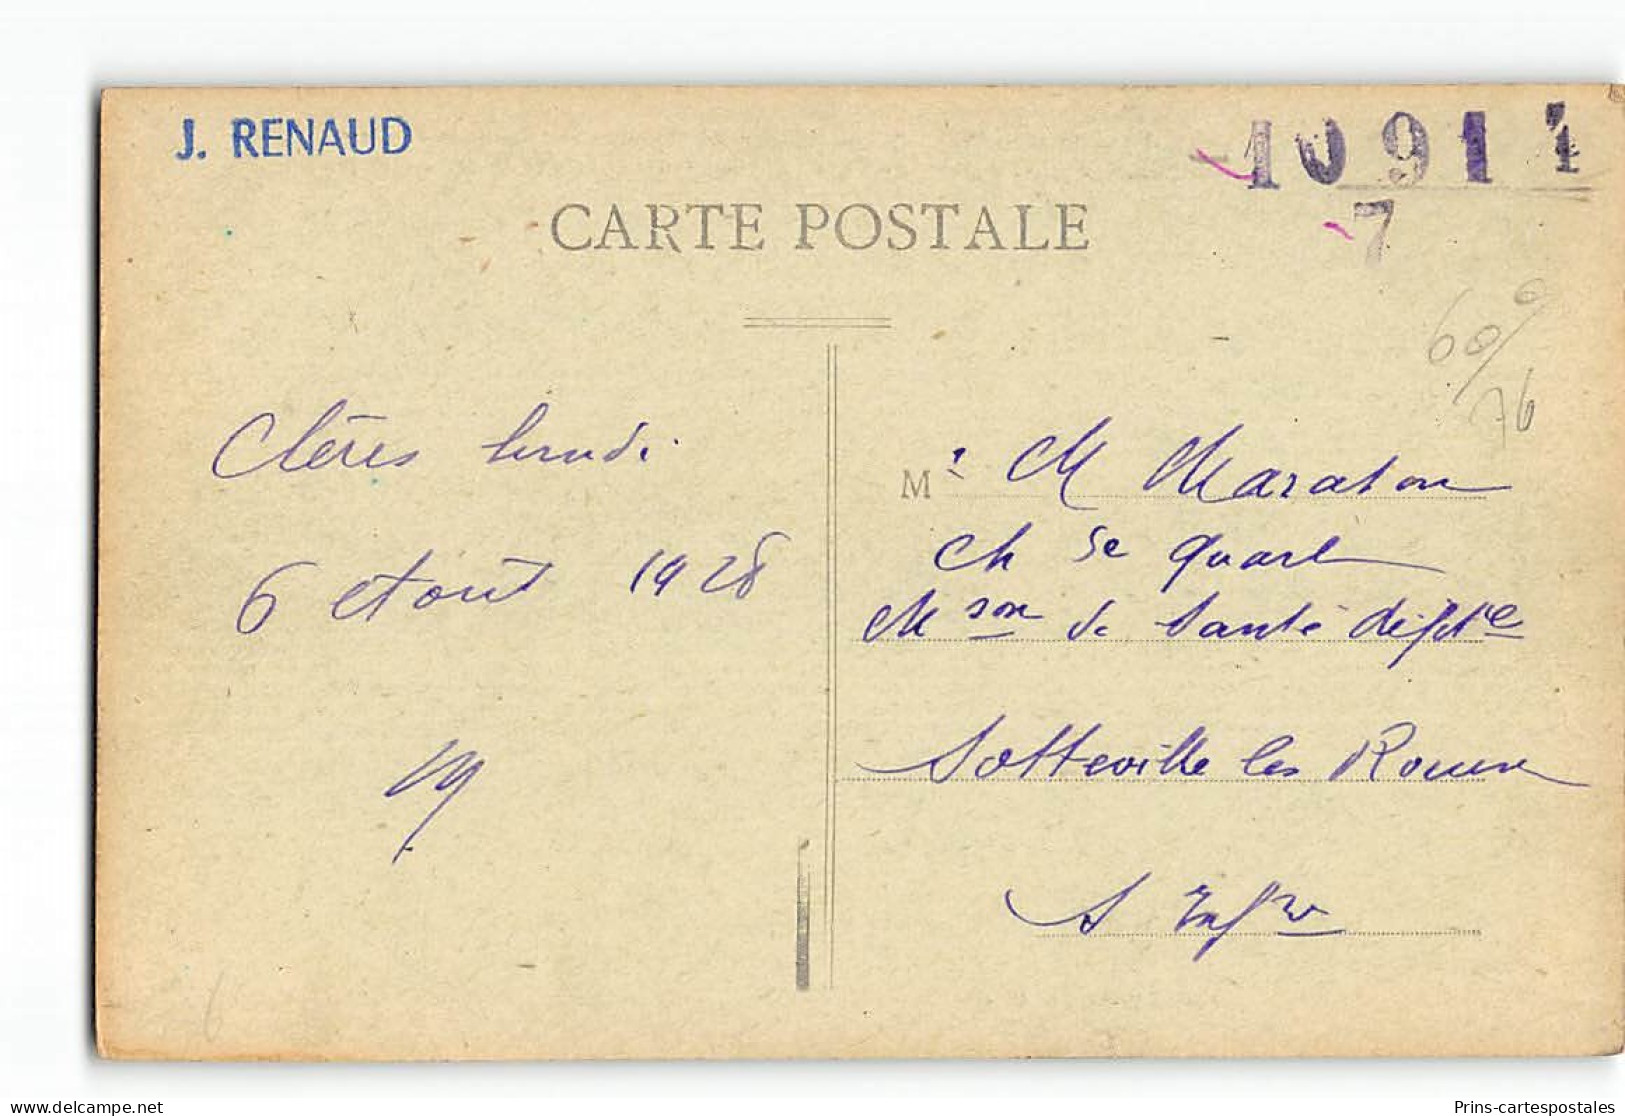 J. RENAUD
10914
7
CARTE POSTALE
60
76
Clères lundi
6 Aout 1928
M. M Maraton
Ch de quart
Mson de Santé déptle
Sotteville les Rouen
S Infre
delcampe.net
Prins-cartespostales